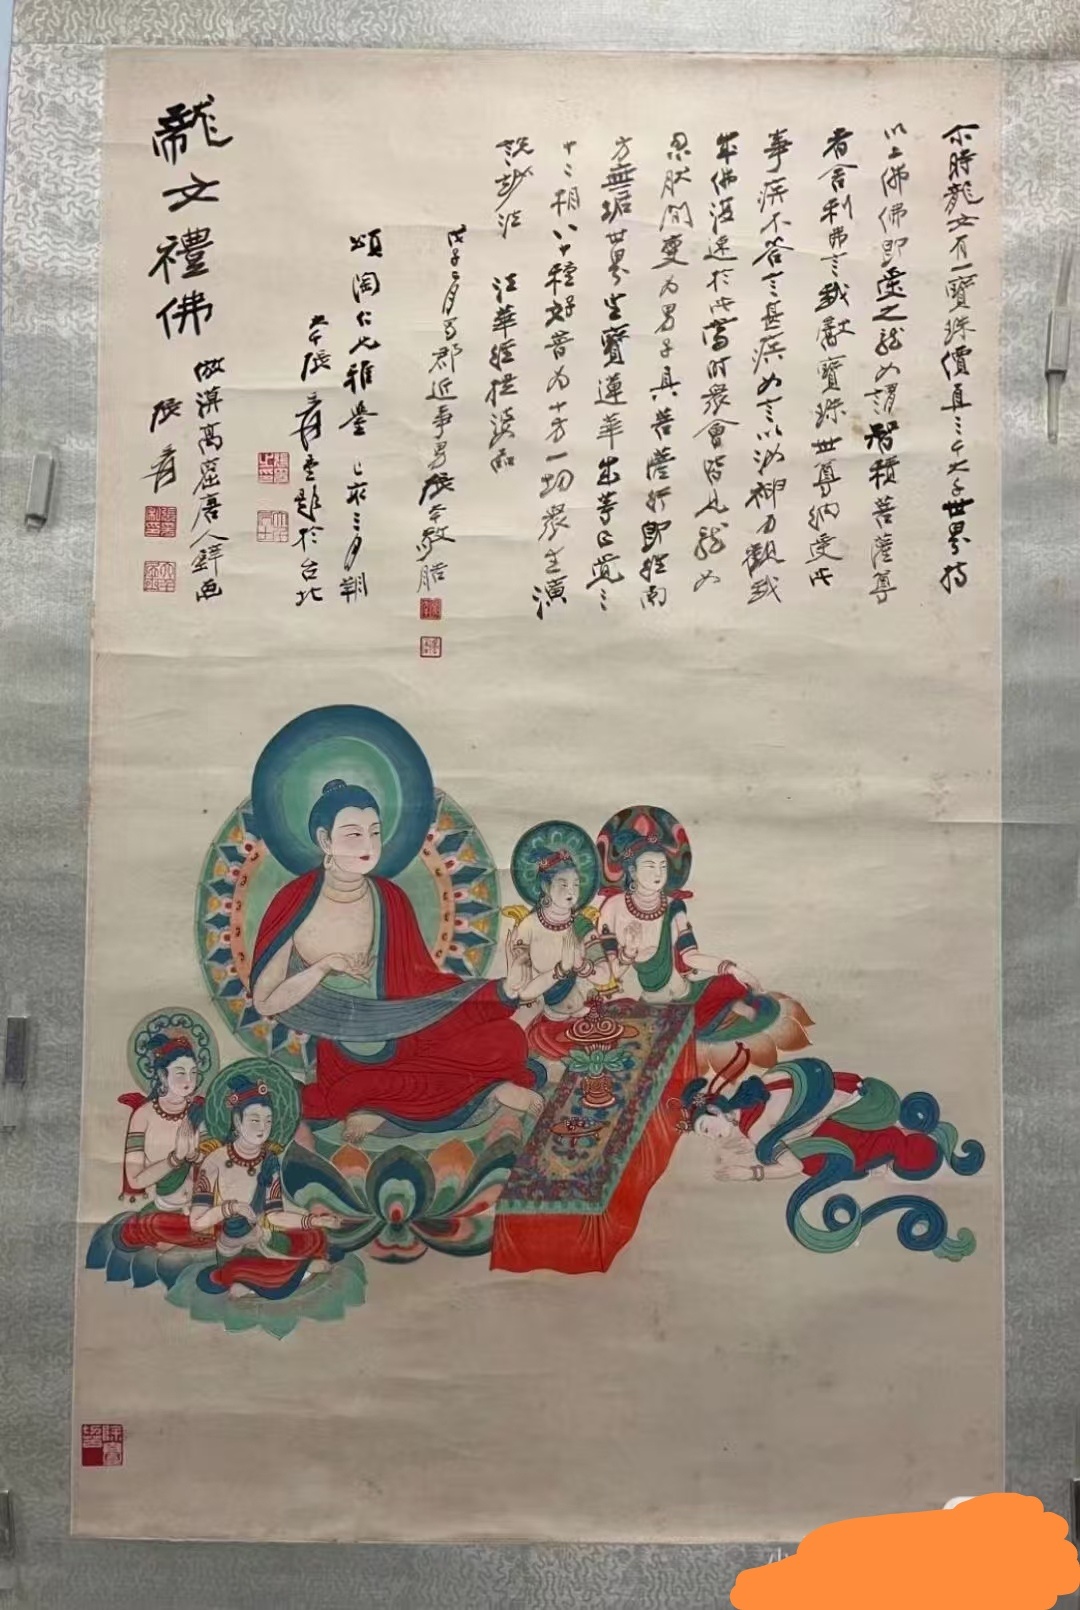 尒時龍女有一寶珠價直三千大千世界持
以上佛佛即受之龍女謂智積菩薩尊
者舍利弗言我獻寶珠世尊納受此
事疾不答言甚疾女言以汝神力觀我
成佛復速於此當時眾會皆見龍女
忽然間變為男子具菩薩行即往南
方無垢世界坐寶蓮華成等正覺三
十二相八十種好普為十方一切眾生演
說妙法
法華經提婆品
戊子二月蜀郡近事男張大千敬
頌陶仁兄雅鑒 己亥三月朔
大千張爰重題於台北
龍女禮佛
倣漠高窟唐人壁画
張爰